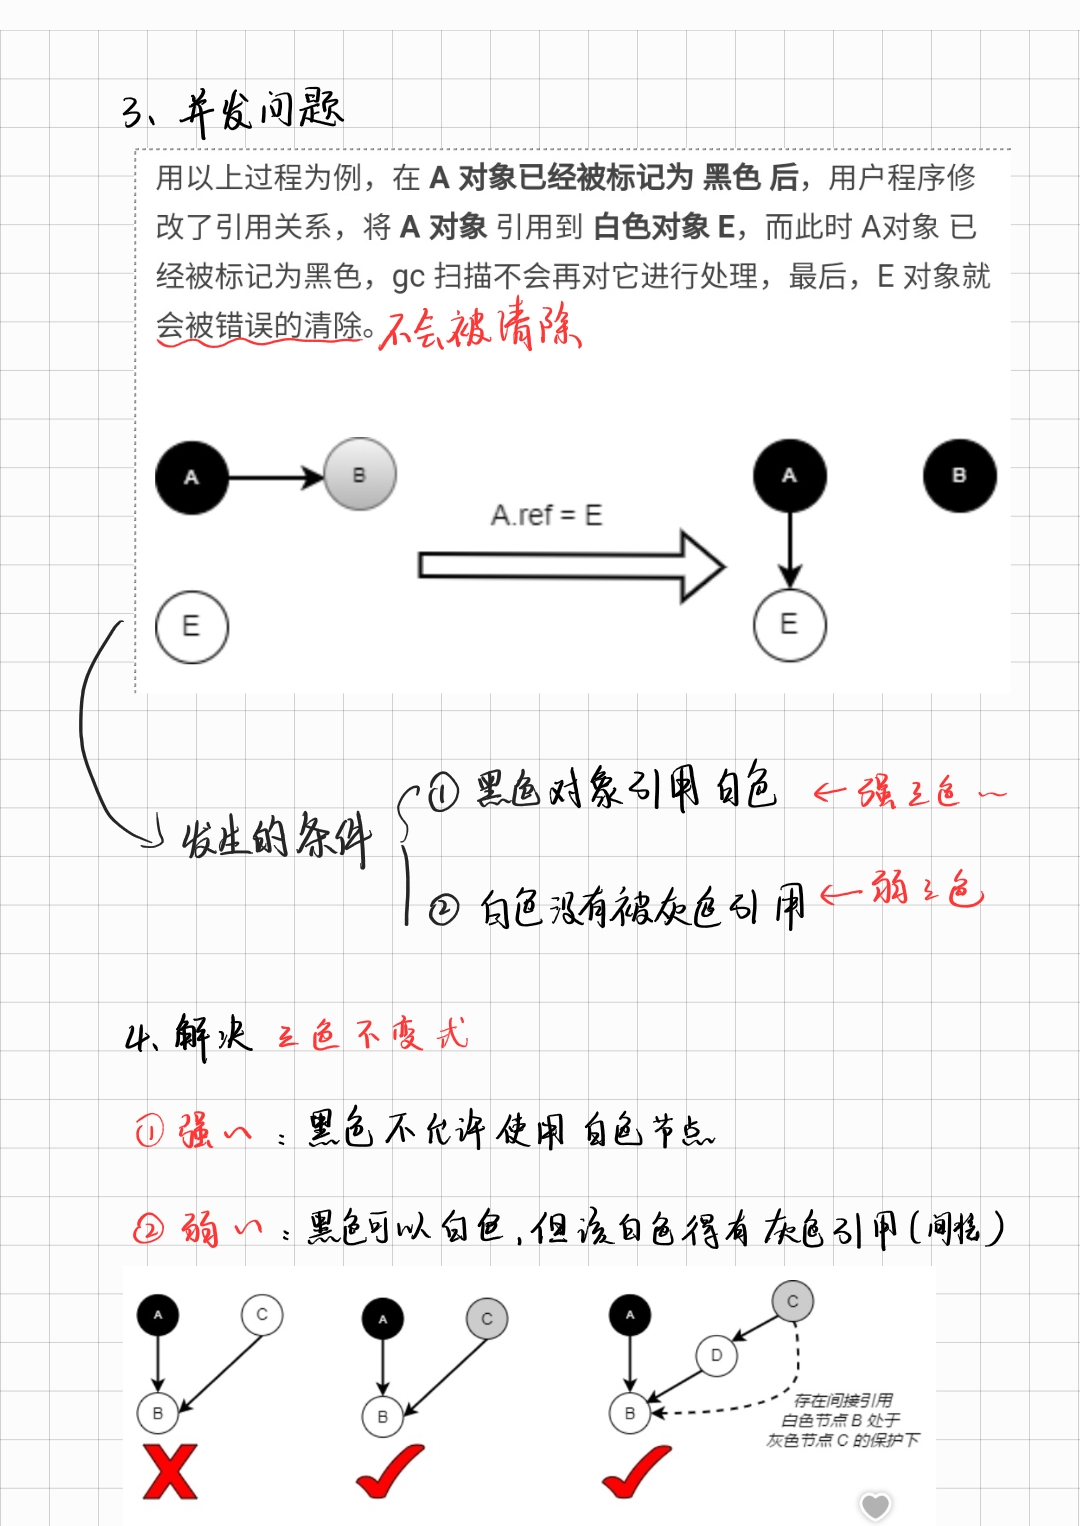 3、并发问题
用以上过程为例，在 A 对象已经被标记为 黑色 后，用户程序修
改了引用关系，将 A 对象 引用到 白色对象 E，而此时 A对象 已
经被标记为黑色，gc 扫描不会再对它进行处理，最后，E 对象就
会被错误的清除。不会被清除
A B A B
A.ref = E
E E
① 黑色对象引用白色 ← 强三色～
发生的条件
② 白色没有被灰色引用 ← 弱三色
4、解决 三色不变式
① 强～：黑色不允许使用白色节点
② 弱～：黑色可以白色，但该白色得有灰色引用(间接)
A C A C A C
D
B B B
存在间接引用
白色节点 B 处于
灰色节点 C 的保护下